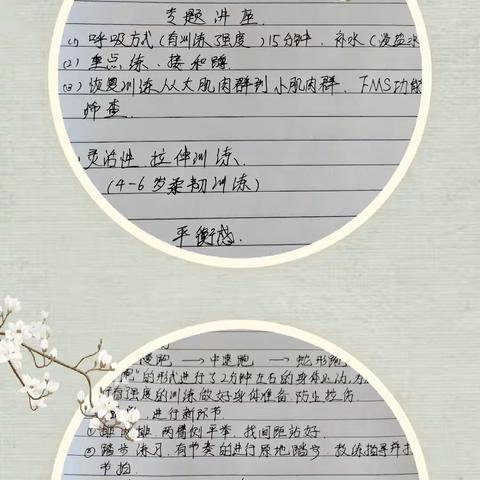 专题讲座.
(1) 呼吸方式 (有训练强度) 15分钟. 补水 (淡盐水
(2) 重点练、接和蹲
(3) 恢复训练从大肌肉群到小肌肉群. FMS功能
师查.
灵活性 拉伸训练.
(4-6岁柔韧训练)
平衡
慢跑 → 中速跑 → 蛇形跑
的形式进行了2分钟左右的身体
有强度的训练做好身体准备 防止拉伤
进行新环节.
① 两臂侧平举, 找间距站好.
② 踏步练习, 有节奏的进行原地踏步, 教练指导并
节拍.